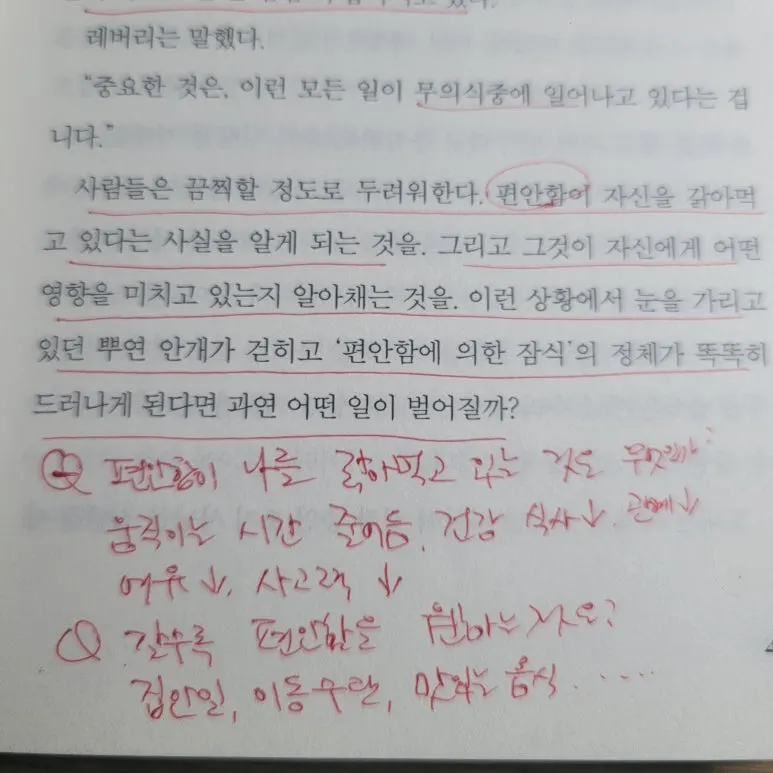 고 있다.
레버리는 말했다.
“중요한 것은, 이런 모든 일이 무의식중에 일어나고 있다는 겁
니다.”
사람들은 끔찍할 정도로 두려워한다. 편안함이 자신을 갉아먹
고 있다는 사실을 알게 되는 것을. 그리고 그것이 자신에게 어떤
영향을 미치고 있는지 알아채는 것을. 이런 상황에서 눈을 가리고
있던 뿌연 안개가 걷히고 ‘편안함에 의한 잠식’의 정체가 똑똑히
드러나게 된다면 과연 어떤 일이 벌어질까?
Q 편안함이 나를 갉아먹고 있는 것은 무엇일까?
움직이는 시간 줄어듬. 건강 식사↓. 관계↓
여유↓. 사고력↓
Q 갈수록 편안함을 원하는
집안일, 이동수단, 맛있는 음식 . . . . . .